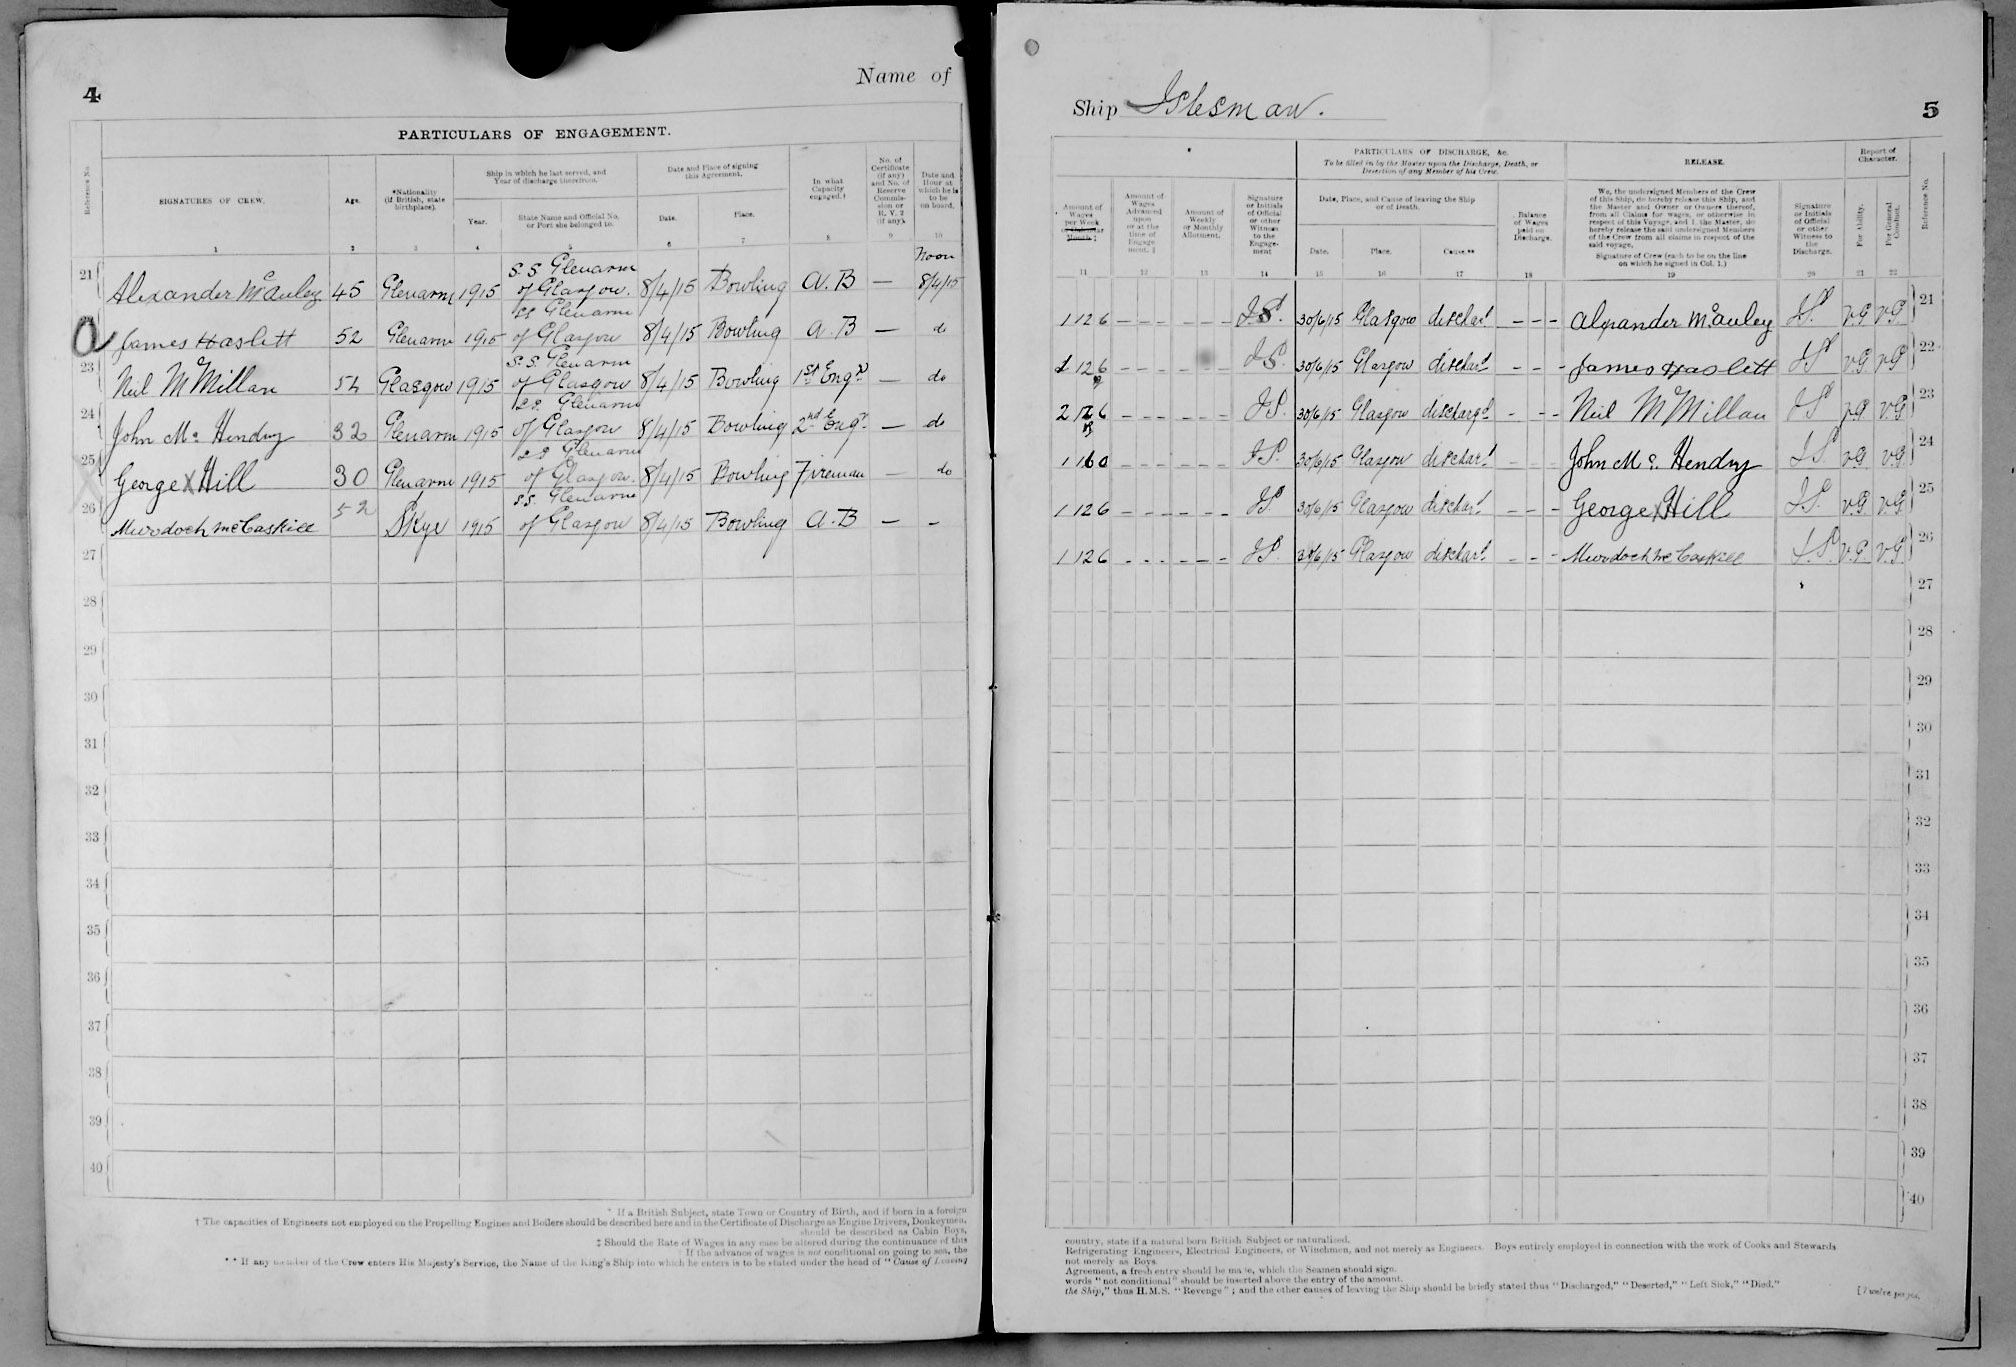 4
Name of
PARTICULARS OF ENGAGEMENT.
Reference No.
SIGNATURES OF CREW.
Age.
*Nationality (if British, state birthplace).
Ship in which he last served, and Year of discharge therefrom.
Year.
State Name and Official No. or Port she belonged to.
Date and Place of signing this Agreement.
Date.
Place.
In what Capacity engaged.†
No. of Certificate (if any) and No. of Reserve Commission or R. V. 2 (if any).
Date and Hour at which he is to be on board.
1 2 3 4 5 6 7 8 9 10
21 Alexander McAuley 45 Glenarm 1915 S.S. Glenarm of Glasgow. 8/4/15 Bowling A.B — Noon 8/4/15
James Haslett 52 Glenarm 1915 SS Glenarm of Glasgow 8/4/15 Bowling A.B — do
23 Neil McMillan 52 Glasgow 1915 S.S. Glenarm of Glasgow 8/4/15 Bowling 1st Engr — do
24 John Mc Hendry 32 Glenarm 1915 S.S. Glenarm of Glasgow 8/4/15 Bowling 2nd Engr — do
25 George X Hill 30 Glenarm 1915 SS Glenarm of Glasgow. 8/4/15 Bowling Fireman — do
26 Murdoch McCaskill 52 Skye 1915 SS. Glenarm of Glasgow 8/4/15 Bowling A.B — -
27
28
29
30
31
32
33
34
35
36
37
38
39
40
* If a British Subject, state Town or Country of Birth, and if born in a foreign
† The capacities of Engineers not employed on the Propelling Engines and Boilers should be described here and in the Certificate of Discharge as Engine Drivers, Donkeymen,
should be described as Cabin Boys,
‡ Should the Rate of Wages in any case be altered during the continuance of this
If the advance of wages is not conditional on going to sea, the
** If any member of the Crew enters His Majesty's Service, the Name of the King's Ship into which he enters is to be stated under the head of "Cause of Leaving
Ship Islesman.
5
PARTICULARS OF DISCHARGE, &c.
To be filled in by the Master upon the Discharge, Death, or Desertion of any Member of his Crew.
RELEASE.
Report of Character.
Amount of Wages per Week or Calendar Month.‡
Amount of Wages Advanced upon or at the time of Engagement.
Amount of Weekly or Monthly Allotment.
Signature or Initials of Official or other Witness to the Engagement
Date, Place, and Cause of leaving the Ship or of Death.
Date.
Place.
Cause.**
Balance of Wages paid on Discharge.
We, the undersigned Members of the Crew of this Ship, do hereby release this Ship, and the Master and Owner or Owners thereof, from all Claims for wages, or otherwise in respect of this Voyage, and I, the Master, do hereby release the said undersigned Members of the Crew from all claims in respect of the said voyage.
Signature of Crew (each to be on the line on which he signed in Col. 1.)
Signature or Initials of Official or other Witness to the Discharge.
For Ability.
For General Conduct.
Reference No.
11 12 13 14 15 16 17 18 19 20 21 22
1 12 6 - - - - - - J.S. 30/6/15 Glasgow dischard - - - Alexander McAuley JS. V.G V.G 21
1 12 6 - - - - - - J.S. 30/6/15 Glasgow dischard - - - James Haslett JS V.G. V.G 22
2 6 - - - - - - JS. 30/6/15 Glasgow discharged - - - Neil McMillan JS V.G V.G 23
1 0 - - - - - - J.S. 30/6/15 Glasgow dischard - - - John Mc. Hendry JS. V.G V.G 24
1 12 6 - - - - - - JS. 30/6/15 Glasgow dischard - - - George X Hill JS. V.G. V.G. 25
1 12 6 - - - - - - JS. 30/6/15 Glasgow dischard - - - Murdoch McCaskill J.S. V.G. V.G. 26
27
28
29
30
31
32
33
34
35
36
37
38
39
40
country, state if a natural born British Subject or naturalized.
Refrigerating Engineers, Electrical Engineers, or Winchmen, and not merely as Engineers. Boys entirely employed in connection with the work of Cooks and Stewards
not merely as Boys.
Agreement, a fresh entry should be made, which the Seamen should sign.
words "not conditional" should be inserted above the entry of the amount.
the Ship," thus H.M.S. "Revenge"; and the other causes of leaving the Ship should be briefly stated thus "Discharged," "Deserted," "Left Sick," "Died."
[Twelve pages.